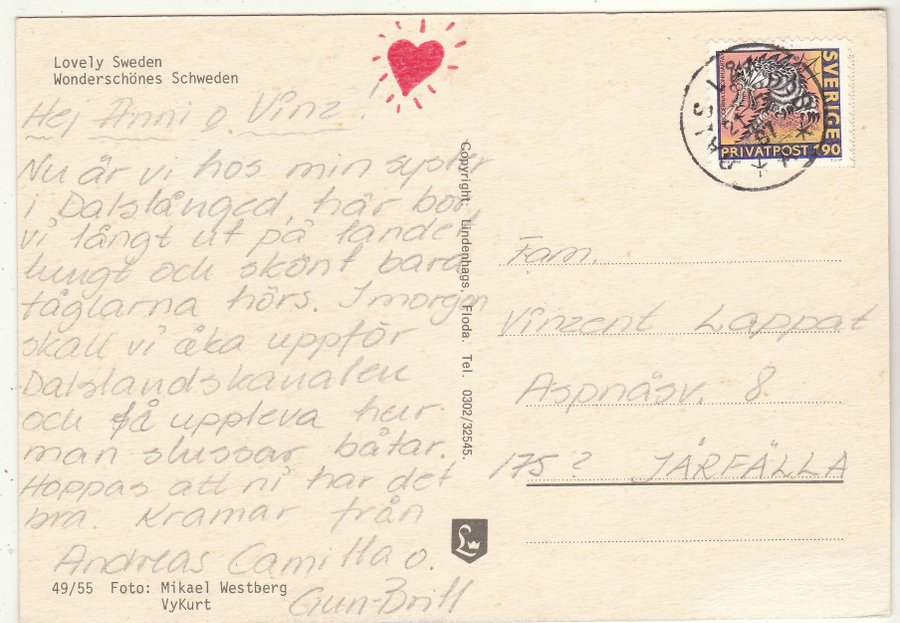 Lovely Sweden
Wonderschönes Schweden
Hej Anni o. Vinz!
Nu är vi hos min syster
i Dalslånged, här bor
vi långt ut på landet
lungt och skönt bara
fåglarna hörs. I morgon
skall vi åka uppför
Dalslandskanalen
och få uppleva hur
man slussar båtar.
Hoppas att ni har det
bra. Kramar från
Andreas Camilla o.
Gun-Britt
49/55 Foto: Mikael Westberg
VyKurt
Copyright: Lindenhags, Floda. Tel. 0302/32545.
SVERIGE
PRIVATPOST 190
Fam.
Vinzent Lappat
Aspnäsv. 8
175 ? JÄRFÄLLA
L